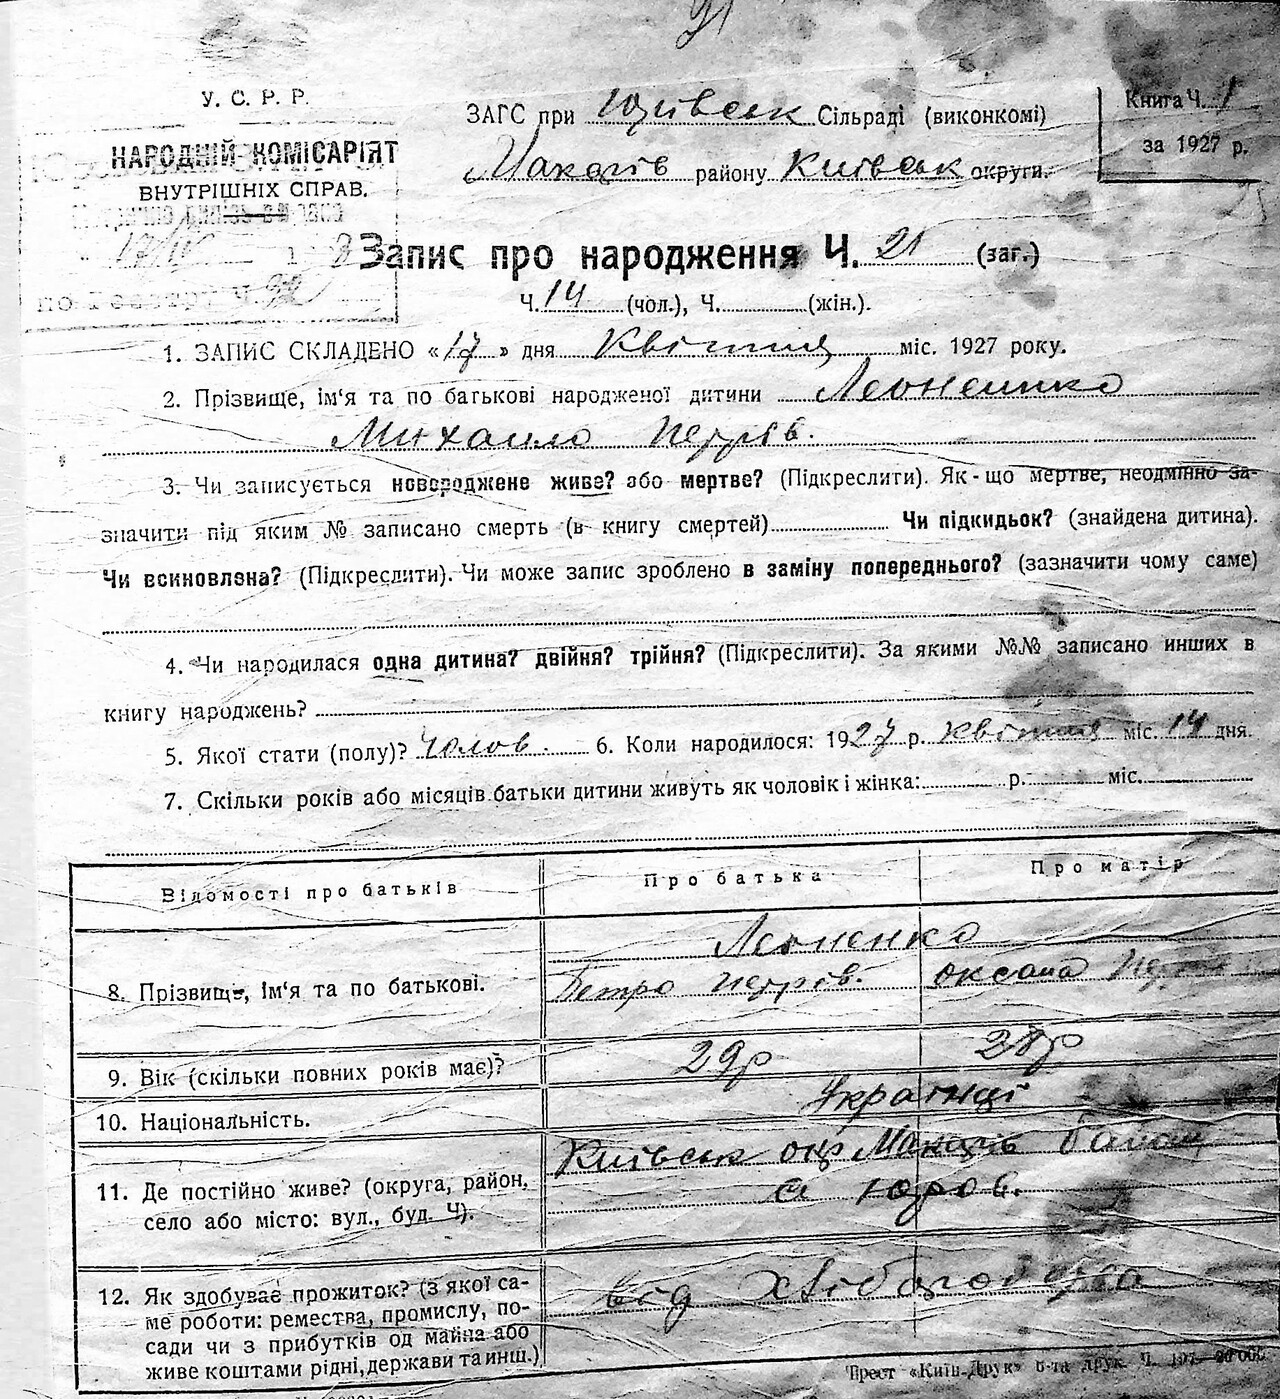 21
У. С. Р. Р.
НАРОДНІЙ КОМІСАРІЯТ
ВНУТРІШНІХ СПРАВ.
17/IV 8
по Реєстру Ч. 92
ЗАГС при Юрівськ Сільраді (виконкомі)
Макарів району Київськ округи.
Книга Ч. 1
за 1927 р.
Запис про народження Ч. 21 (заг.)
Ч. 14 (чол.), Ч. (жін.).
1. ЗАПИС СКЛАДЕНО «17» дня Квітня міс. 1927 року.
2. Прізвище, ім'я та по батькові народженої дитини Леоненко
Михайло Петрів.
3. Чи записується новороджене живе? або мертве? (Підкреслити). Як-що мертве, неодмінно за-
значити під яким № записано смерть (в книгу смертей) Чи підкидьок? (знайдена дитина).
Чи всиновлена? (Підкреслити). Чи може запис зроблено в заміну попереднього? (зазначити чому саме)
4. Чи народилася одна дитина? двійня? трійня? (Підкреслити). За якими №№ записано инших в
книгу народжень?
5. Якої стати (полу)? Чолов. 6. Коли народилося: 1927 р. квітня міс. 14 дня.
7. Скільки років або місяців батьки дитини живуть як чоловік і жінка: р. міс.
Відомості про батьків Про батька Про матір
Леоненко
8. Прізвище, ім'я та по батькові. Петро Петрів. Оксана
9. Вік (скільки повних років має)? 29р
10. Національність. Українці
11. Де постійно живе? (округа, район, Київськ окр Макарів
село або місто: вул., буд. Ч). с Юров.
12. Як здобуває прожиток? (з якої са- від хліборобства
ме роботи: ремества, промислу, по-
сади чи з прибутків од майна або
живе коштами рідні, держави та инш.)
Трест «Київ-Друк» 6-та друк.